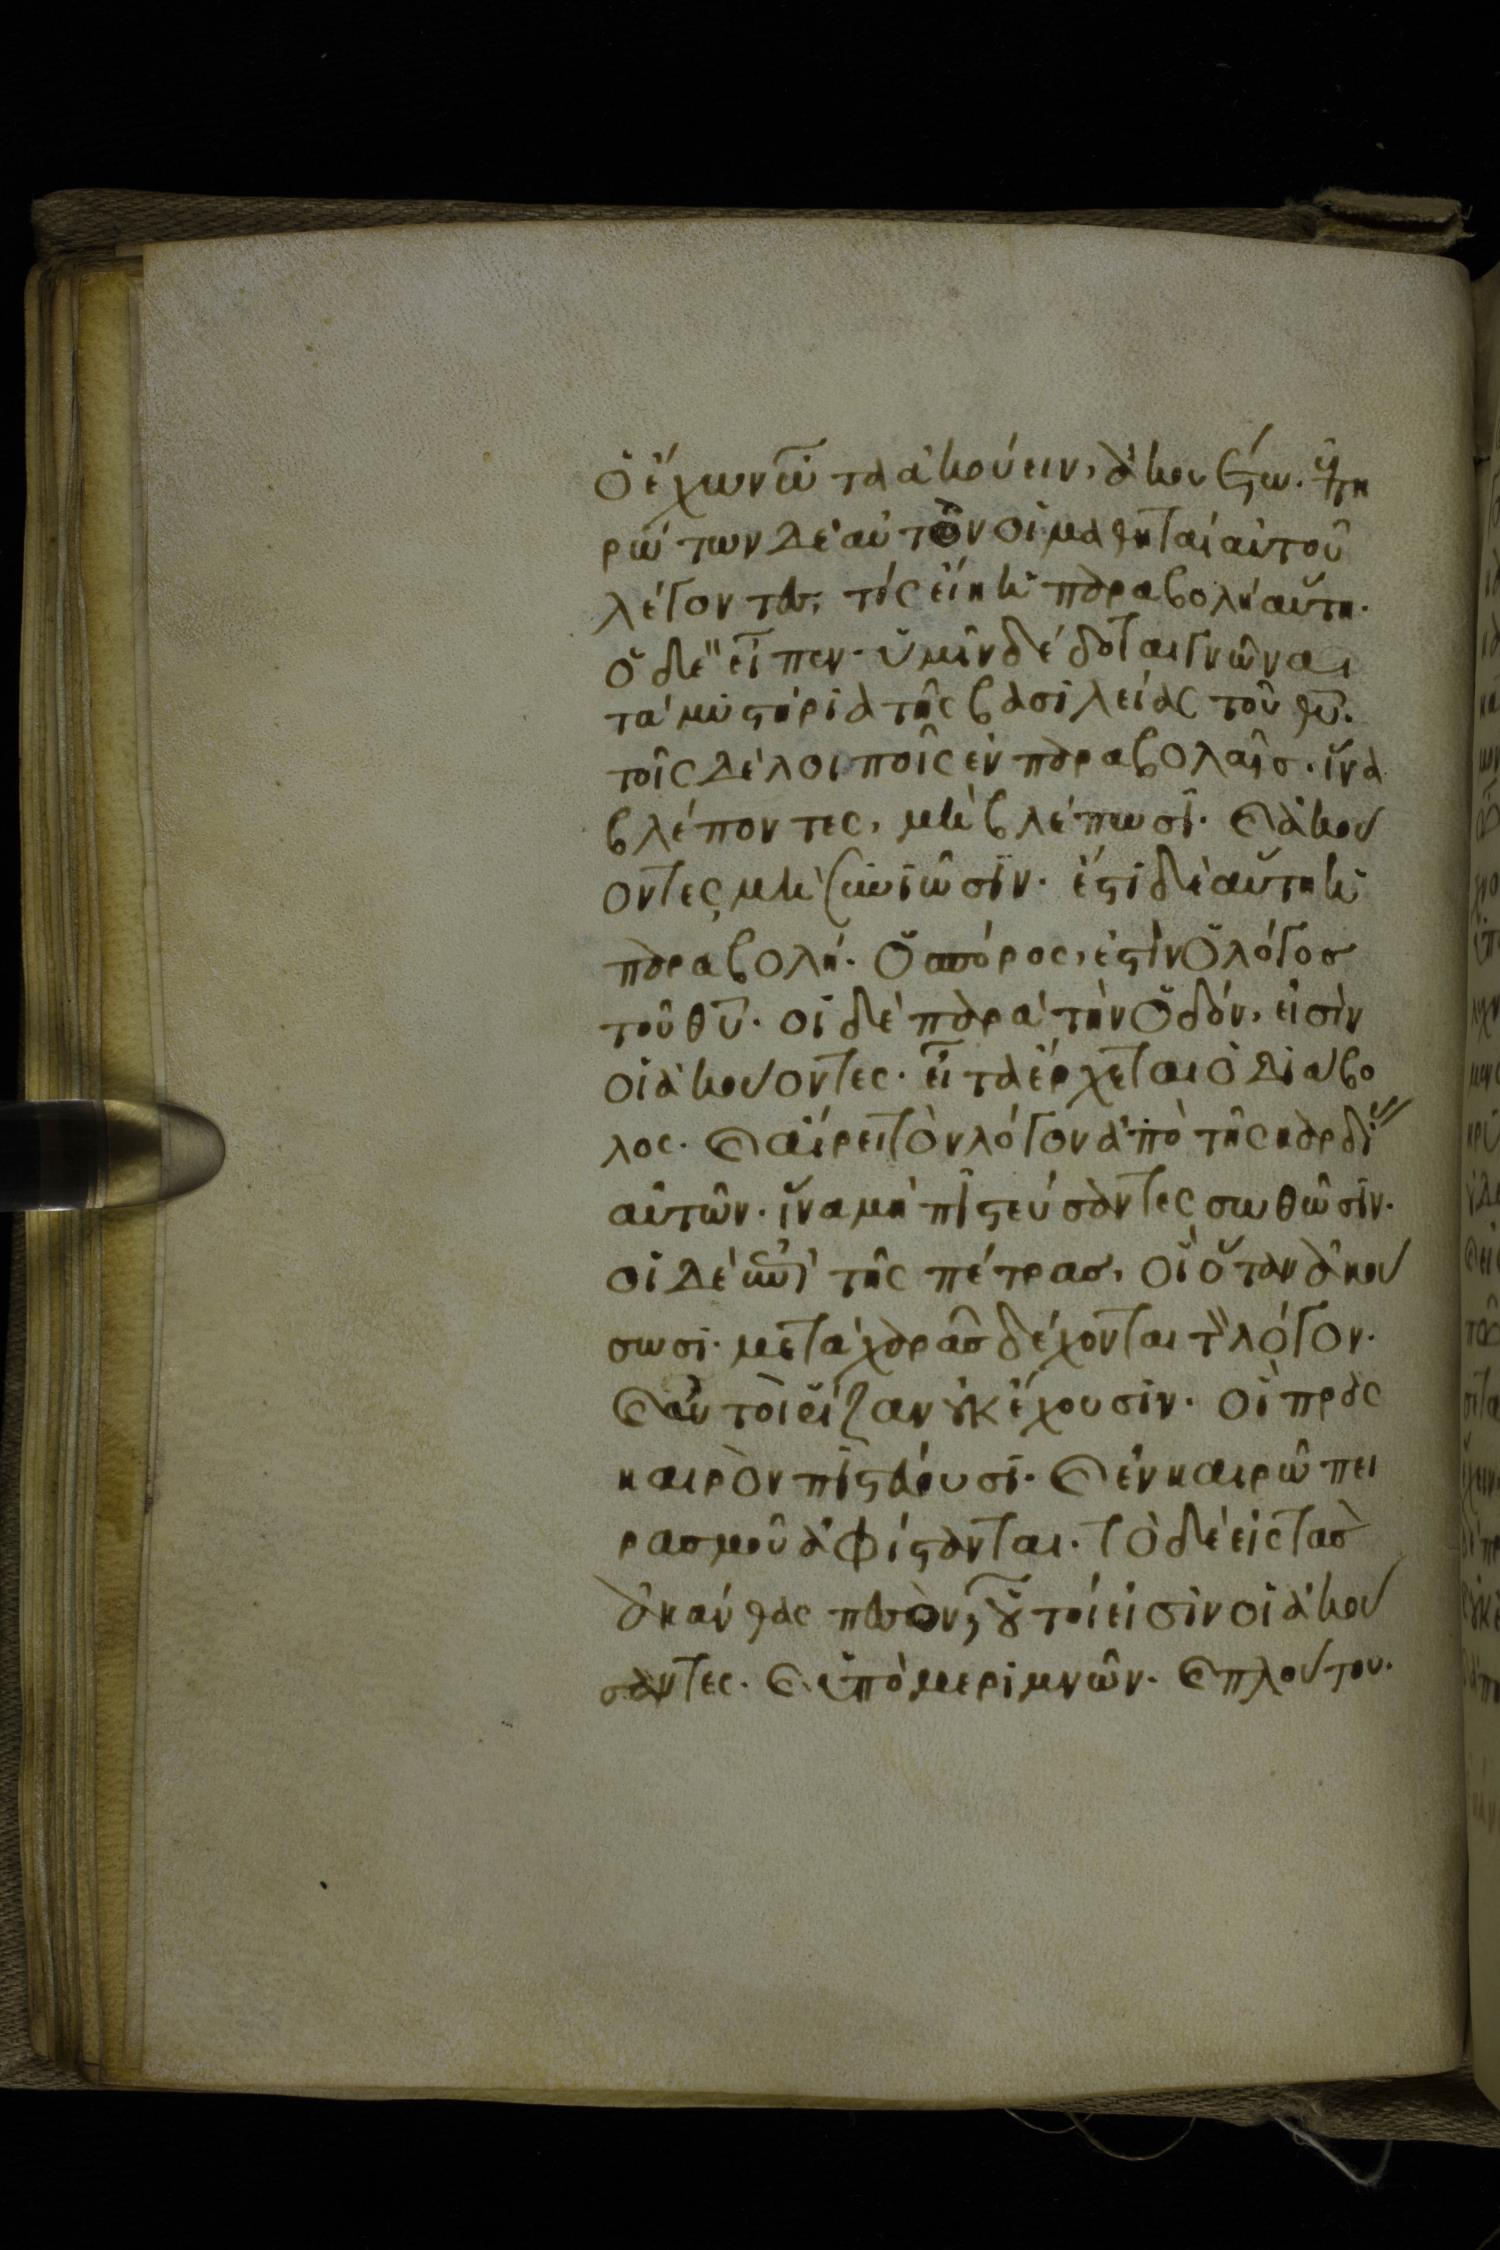 ὁ ἔχων ὦτα ἀκούειν, ἀκουέτω. ἐπη
ρώτων δὲ αὐτὸν οἱ μαθηταὶ αὐτοῦ
λέγοντες, τίς εἴη ἡ παραβολὴ αὕτη.
ὁ δὲ εἶπεν. ὑμῖν δέδοται γνῶναι
τὰ μυστήρια τῆς βασιλείας τοῦ θῦ.
τοῖς δὲ λοιποῖς ἐν παραβολαῖσ. ἵνα
βλέποντες, μὴ βλέπωσϊ. καὶ ἀκού
οντες μὴ συνιῶσϊν. ἔστι δὲ αὕτη ἡ
παραβολή. ὁ σπόρος, ἐστὶν ὁ λόγοσ
τοῦ θῦ. οἱ δὲ παρὰ τὴν ὁδόν, εἰσὶν
οἱ ἀκούοντες. εἶτα ἔρχεται ὁ διάβο
λος. καὶ αἴρει τὸν λόγον ἀπὸ τῆς καρδί
αὐτῶν. ἵνα μὴ πϊστεύσαντες σωθῶσϊν.
οἱ δὲ ἐπὶ τῆς πέτρασ, οἳ ὅταν ἀκού
σωσι. μετὰ χαρᾶσ δέχονται τ λόγον.
καὶ αὐτοὶ ῥίζαν οὐκ ἔχουσιν. οἳ πρὸς
καιρὸν πϊστεύουσϊ. καὶ ἐν καιρῶ πει
ρασμοῦ ἀφίστανται. τὸ δὲ εἰς τὰσ
ἀκάνθας πεσὸν, οὗτοί εἰσὶν οἱ ἀκού
σαντες. καὶ ὑπὸ μεριμνῶν. καὶ πλούτου.